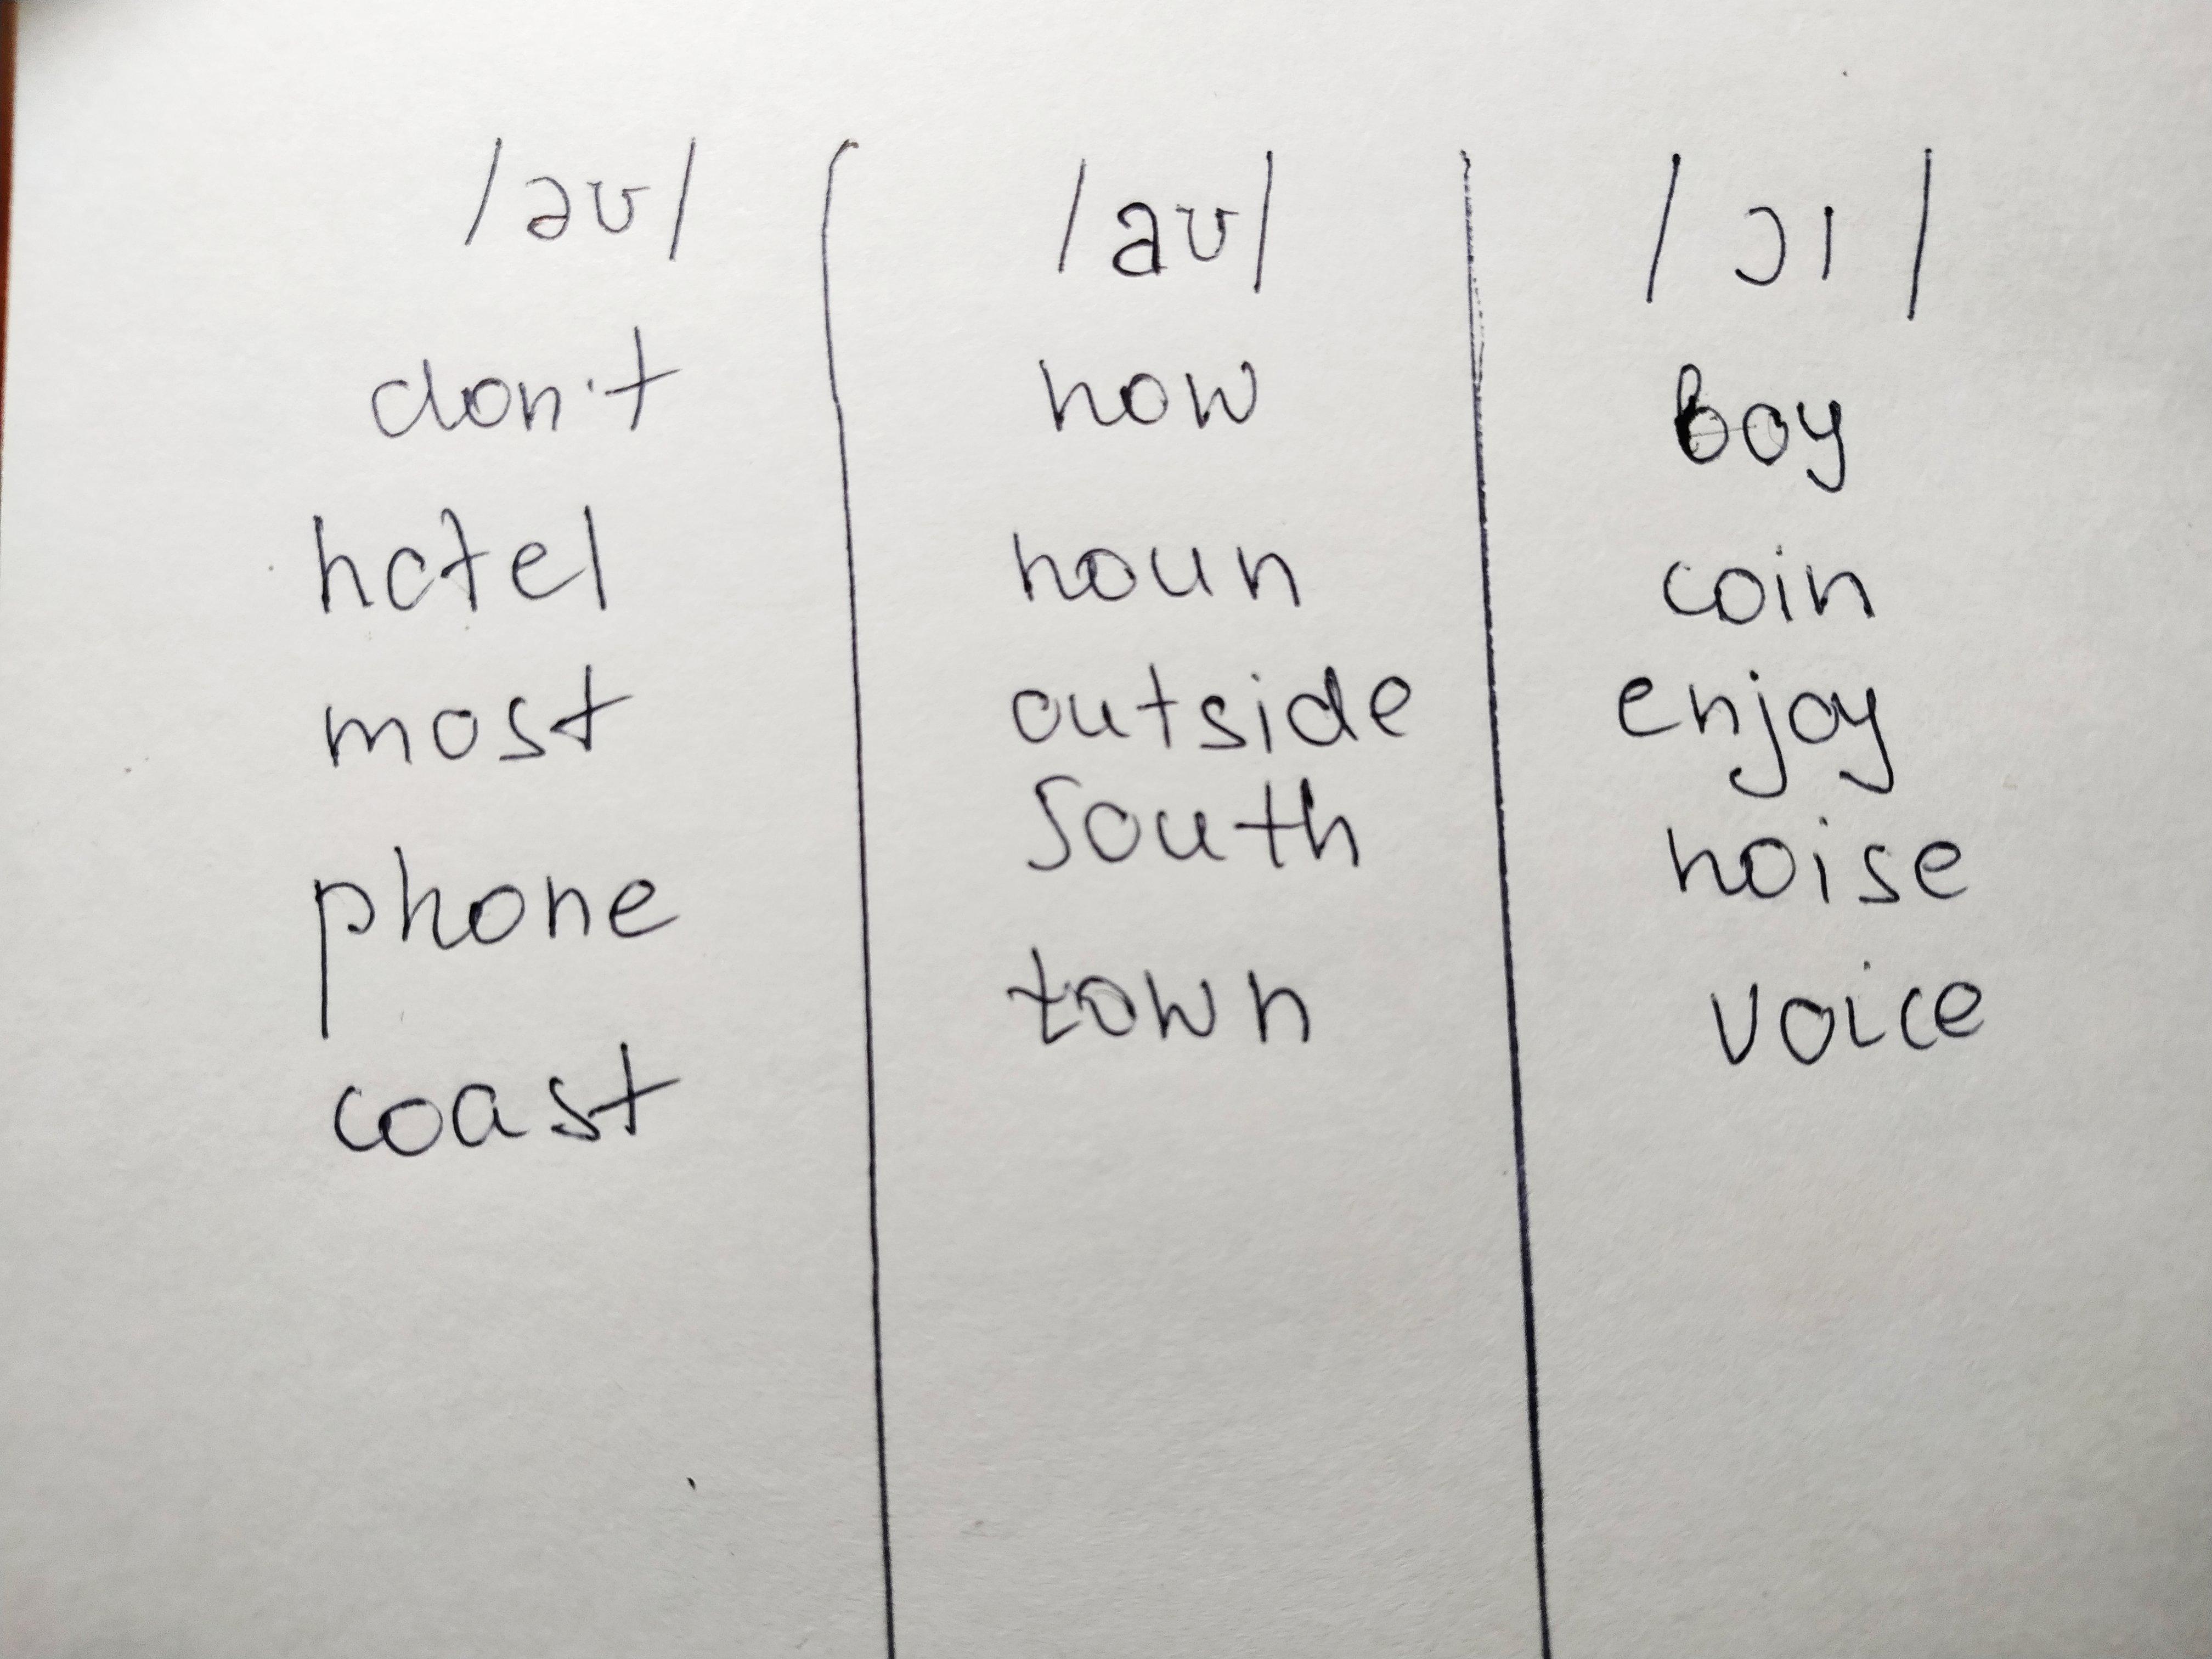 /əʊ/ /aʊ/ /ɔɪ/
don't now boy
hotel noun coin
most outside enjoy
phone south noise
coast town voice